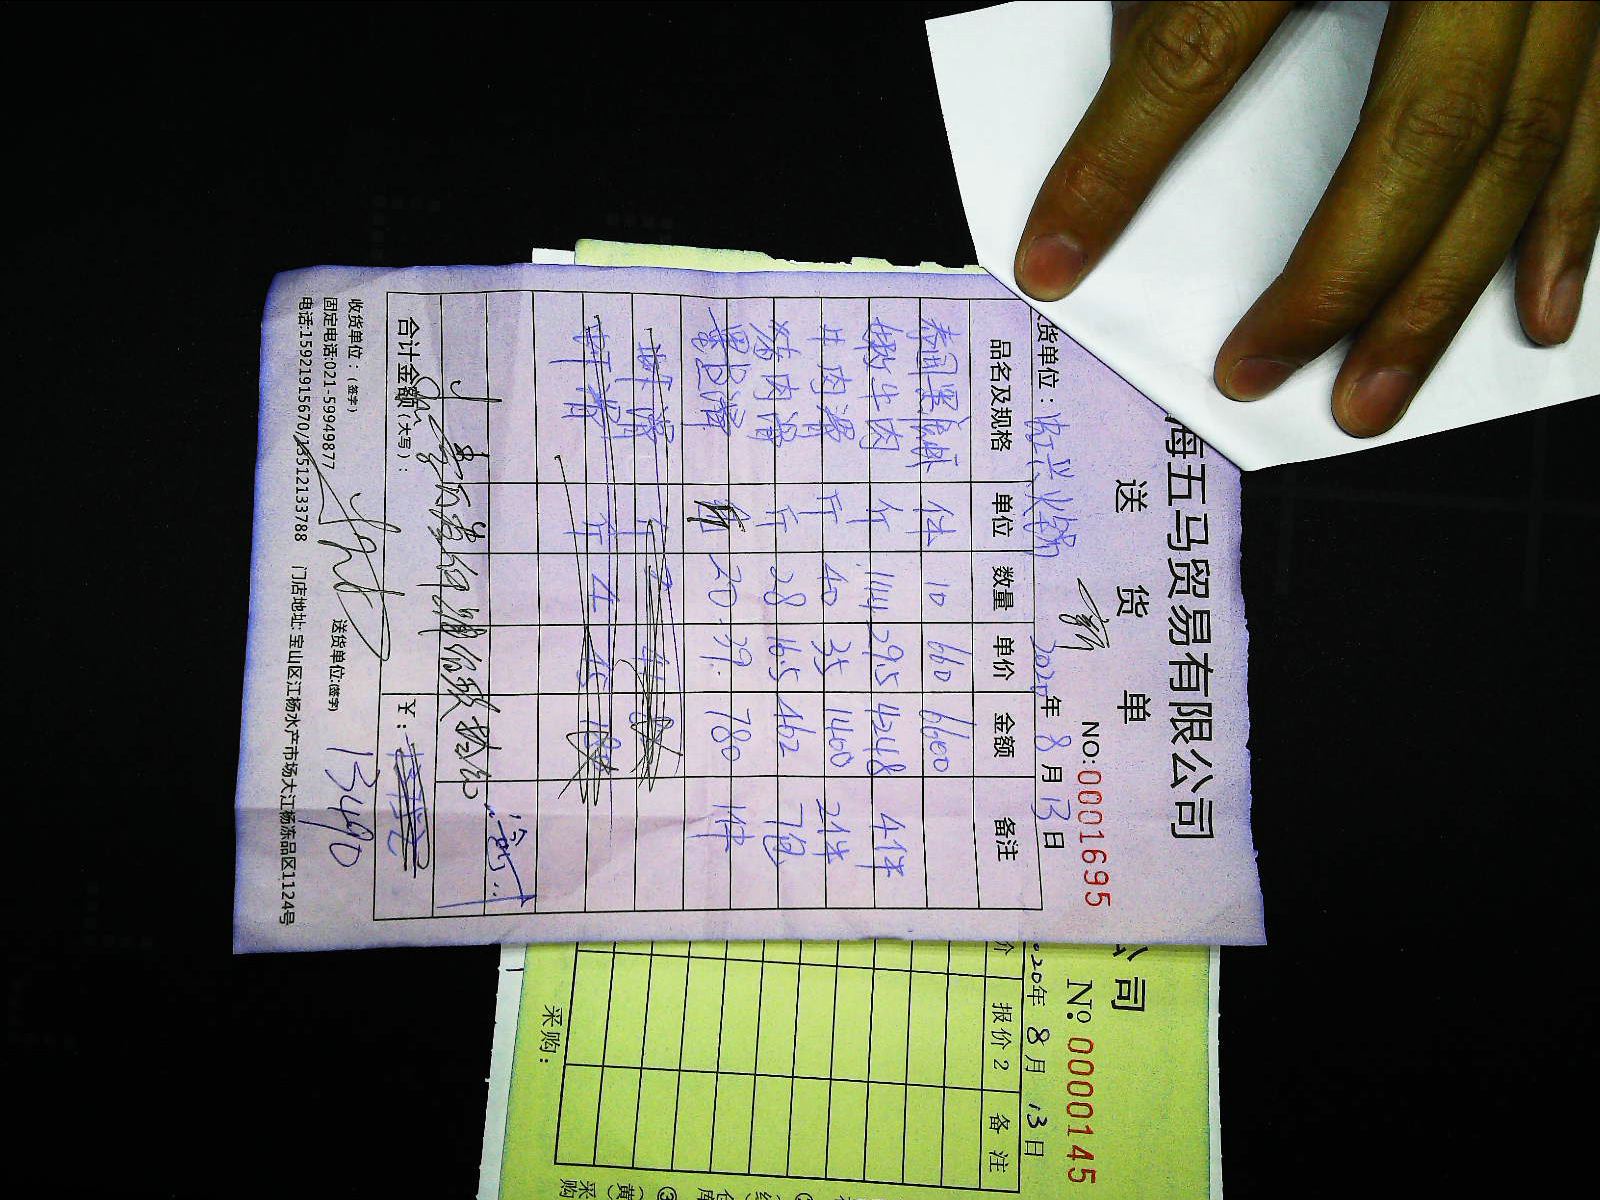 海五马贸易有限公司
送 货 单
NO:0001695
货单位:
2020年 8 月 13 日
品名及规格 单位 数量 单价 金额 备注
件 10 660 6600
嫩牛肉 斤 144 29.5 4248 4件
牛肉滑 斤 40 35 1400 2件
猪肉滑 斤 28 16.5 462 7包
20 39. 780 1件
虾滑 斤
虾滑 斤 4 45 180
合计金额(大写):
¥:
13490
收货单位:(签字)
送货单位:(签字)
固定电话:021-59949877
电话:15921915670/13512133788
门店地址: 宝山区江杨水产市场大江杨冻品区1124号
公司
No. 0000145
2020年 8月 13日
价 报价2 备注
采购: